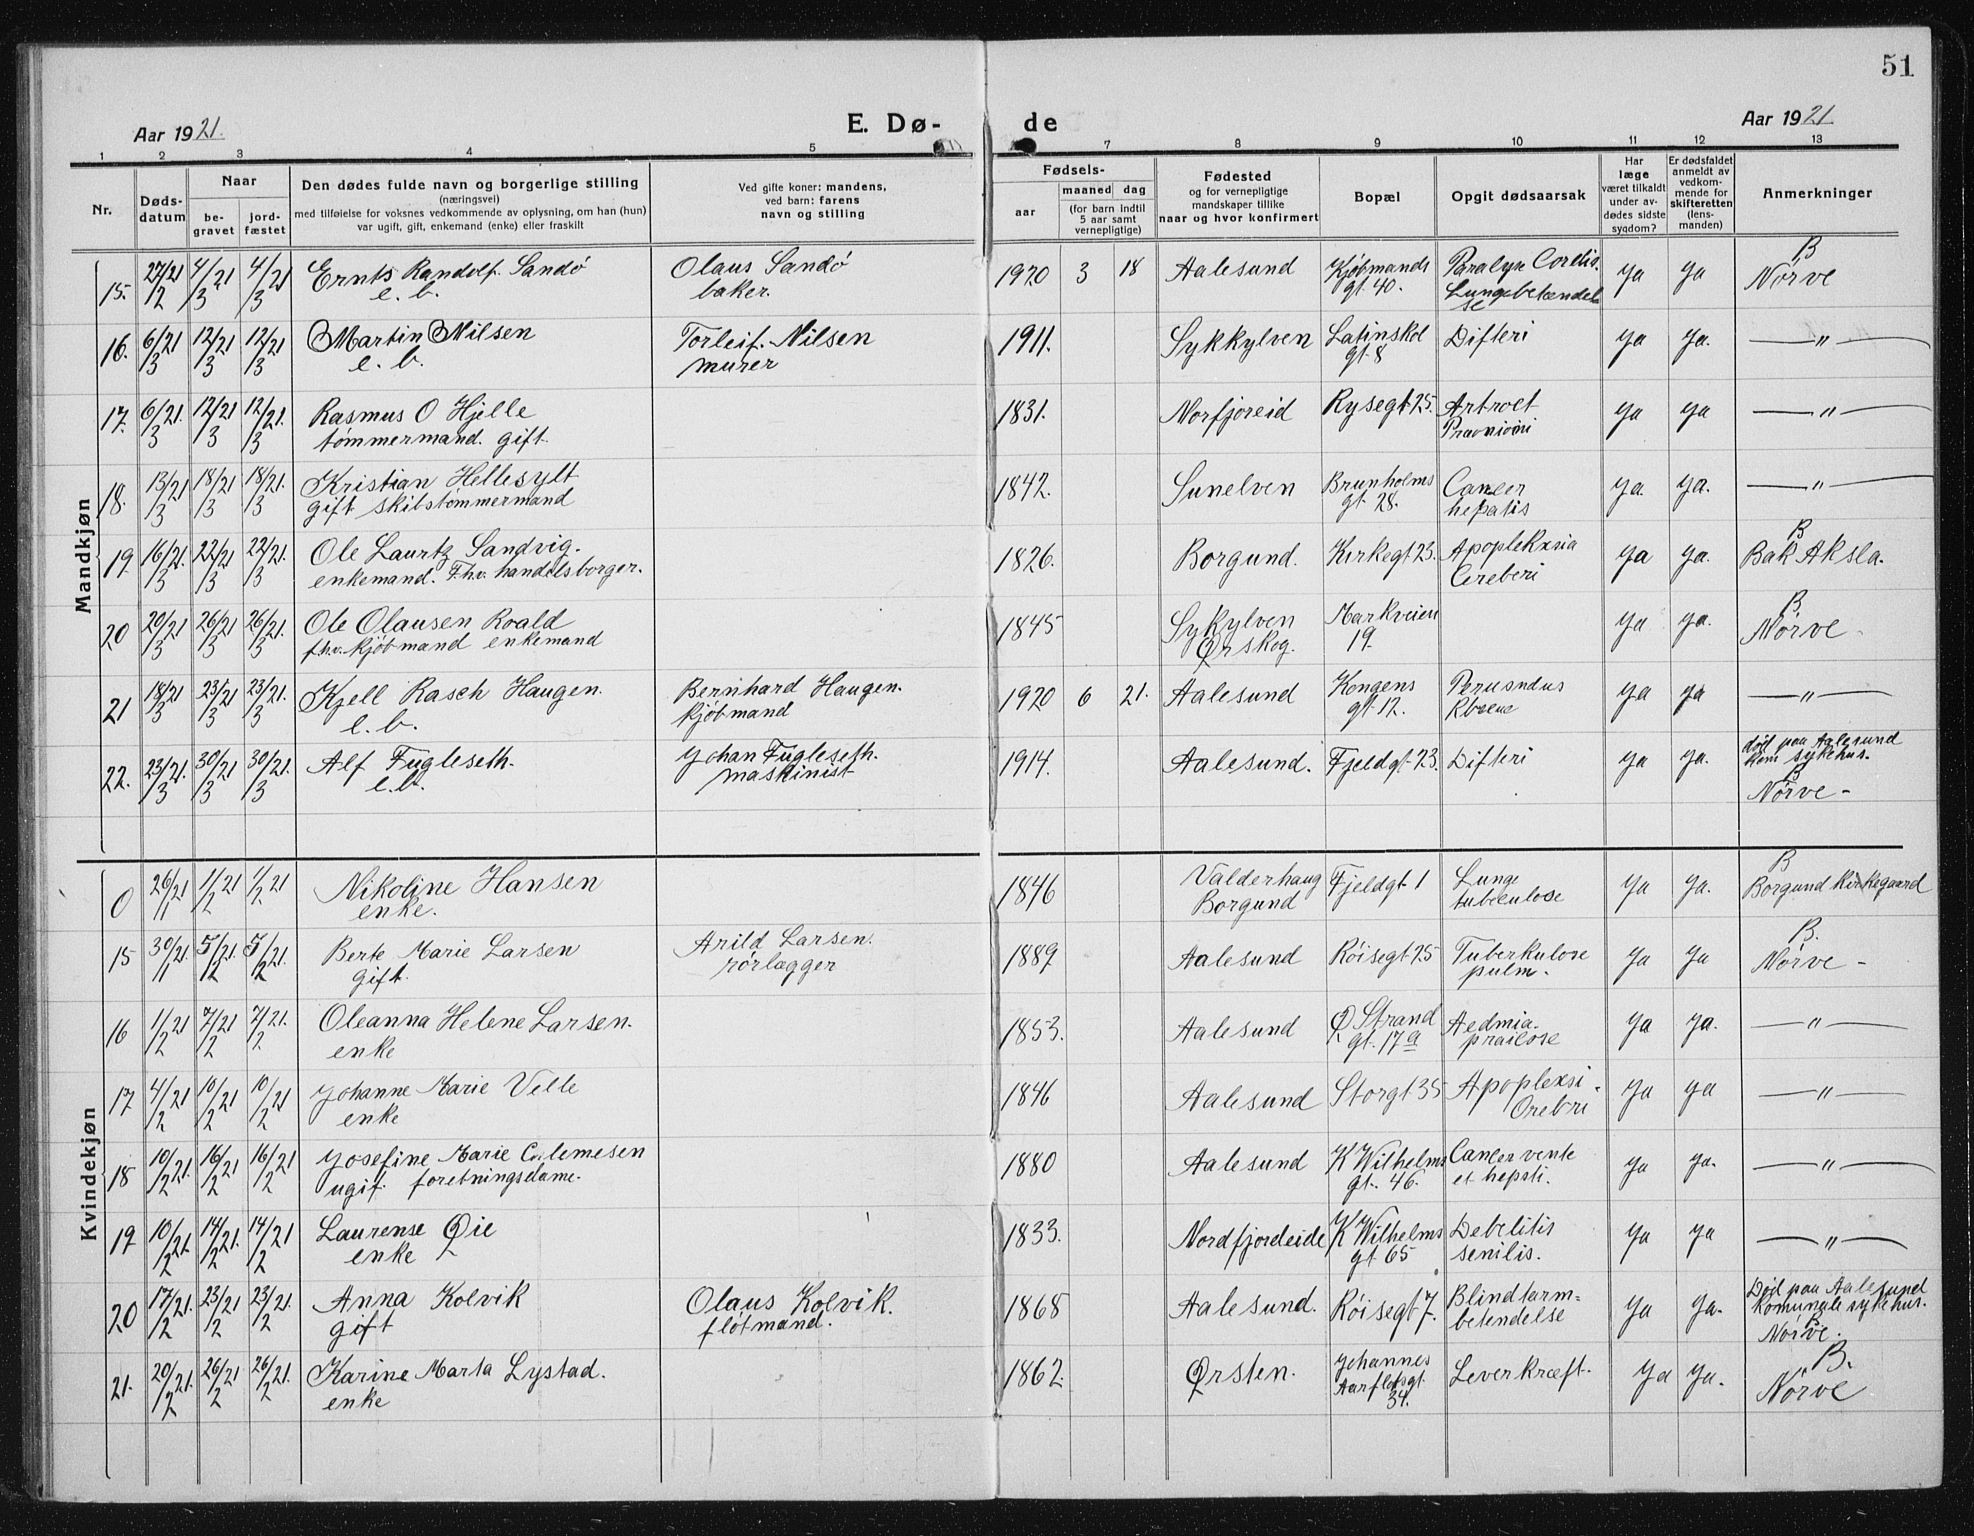 51
Aar 1921.
E. Dø-
de
Aar 1921
1 2 3 4 5 7 8 9 10 11 12 13
Nr.
Døds-
datum
Naar
be-
gravet
jord-
fæstet
Den dødes fulde navn og borgerlige stilling
(næringsvei)
med tilføielse for voksnes vedkommende av oplysning, om han (hun)
var ugift, gift, enkemand (enke) eller fraskilt
Ved gifte koner: mandens,
ved barn: farens
navn og stilling
Fødsels-
aar
maaned
dag
(for barn indtil
5 aar samt
vernepligtige)
Fødested
og for vernepligtige
mandskaper tillike
naar og hvor konfirmert
Bopæl
Opgit dødsaarsak
Har
læge
været tilkaldt
under av-
dødes sidste
sygdom?
Er dødsfaldet
anmeldt av
vedkom-
mende for
skifteretten
(lens-
manden)
Anmerkninger
Mandkjøn
15. 27/2 21 4/3 21 4/3 21 Ernts Randolf. Sandö Olaus Sandö 1920 3 18 Aalesund Kjöbmands Paralyse Cordis. ya ya B
e. b. baker. gt. 40. Lungebetændel Nörve
se
16. 6/3 21 12/3 21 12/3 21 Martin Nilsen Torleif. Nilsen 1911. Sykkylven Latinskol Difteri ya ya. — " —
e. b. murer gt. 8
17. 6/3 21. 12/3 21 12/3 21. Rasmus O Hjelle 1831. Norfjoreid Rysegt 25. ya ya — " —
tømmermand. gift.
18. 13/3 21 18/3 21 18/3 21. Kristian Hellesylt 1842. Sunelven Brunholms Cancer ya. ya. — " —
gift skibstømmermand gt 28. hepatis
19. 16/3 21. 22/3 21 22/3 21. Ole Laurtz Sandvig. 1826. Borgund. Kirkegt 23. Apoplekxsia ya ya. B
enkemand. Fhv. handelsborger. Cereberi Bak Aksla.
20 20/3 21 26/3 21 26/3 21. Ole Olausen Roald 1845 Sykylven Markveien ya ya. B.
fhv. kjöbmand enkemand Ørskog. 19. Nörve -
21 18/3 21 23/3 21 23/3 21. Kjell Rasch Haugen. Bernhard Haugen. 1920 6 21. Aalesund Kongens ya ya — " —
e. b. kjöbmand gt 12.
22. 23/3 21. 30/3 21 30/3 21. Alf Fugleseth. Johan Fugleseth. 1914. Aalesund. Fjeldgt 23. Difteri ya ya. död paa Aalesund
e. b. maskinist kom sykehus.
B
Nörve -
Kvindekjøn
0 26/1 21 1/2 21 1/2 21 Nikoline Hansen 1846 Valderhaug Fjeldgt 1 Lunge ya ya. B
enke. Borgund tubeculose Borgund Kirkegaard
15 30/1 21. 5/2 21. 5/2 21. Berte Marie Larsen Arild Larsen. 1889 Aalesund Röisegt 25 Tuberkulose ya ya B.
gift. rörlægger pulm. Nörve -
16 1/2 21 7/2 21 7/2 21. Oleanna Helene Larsen. 1853. Aalesund Ø Strand ya ya. — " —
enke gt. 17a
17 4/2 21 10/2 21 10/2 21 Johanne Marie Velle 1846 Aalesund Storgt 35 Apoplexsi ya ya — " —
enke
18 10/2 21. 16/2 21 16/2 21 Josefine Marie 1880 Aalesund K Wilhelms Cancer vente ya ya. — " —
ugif. foretningsdame. gt. 46. et hepsti.
19 10/2 21. 14/2 21. 14/2 21 Laurense Øie 1833. Nordfjordeide K Wilhelms Debelitis ya ya — " —
enke gt 65 senilis.
20 17/2 21. 23/2 21 23/2 21. Anna Kolvik Olaus Kolvik. 1868 Aalesund. Röisegt 7. Blindtarm= ya ya. Död paa Aalesund
gift flötmand. betendelse Komunale sykehus.
B.
Nörve.
21. 20/2 21. 26/2 21 26/2 21. Karine Marta Lystad. 1862. Ørsten. Johannes Leverkræft. ya ya. B.
enke Aarflotsgt. Nörve
34.